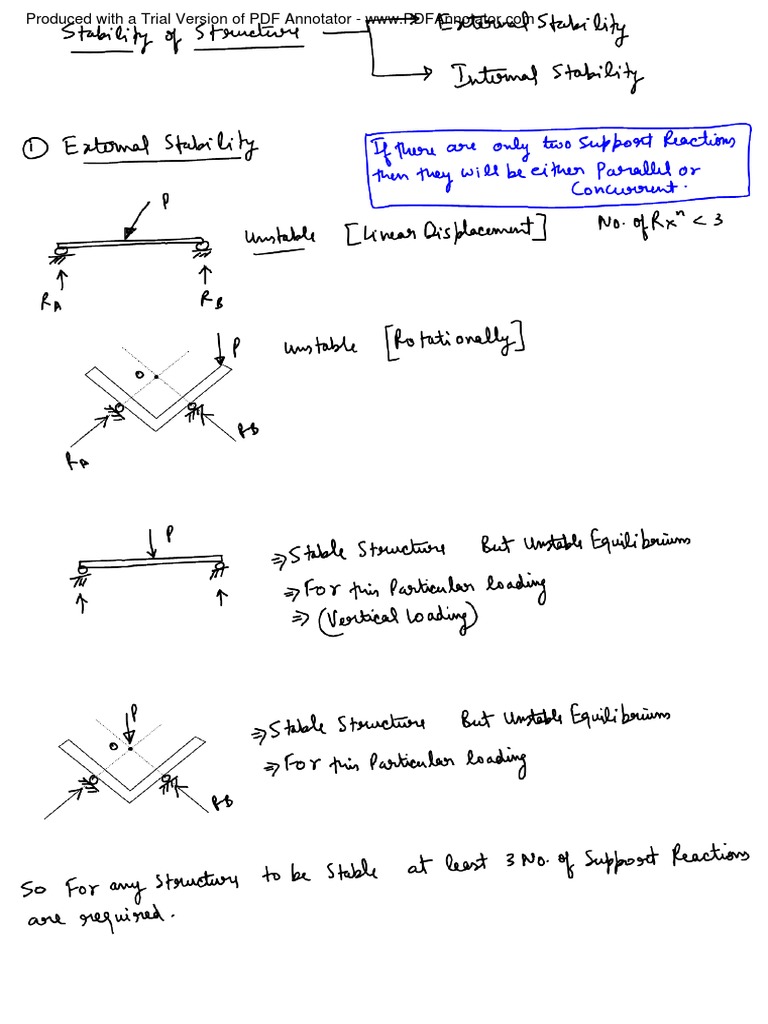 Produced with a Trial Version of PDF Annotator - www.PDFAnnotator.com
Stability of Structure
External Stability
Internal Stability
① External Stability
If there are only two Support Reactions
then they will be either Parallel or
Concurrent.
P
Unstable [Linear Displacement] No. of Rxⁿ < 3
RA RB
P
Unstable [Rotationally]
O
RB
RA
P
⇒ Stable Structure But Unstable Equilibrium
⇒ For this Particular loading
⇒ (Vertical Loading)
P
⇒ Stable Structure But Unstable Equilibrium
O
⇒ For this Particular loading
RB
So For any Structure to be Stable at least 3 No. of Support Reactions
are required.